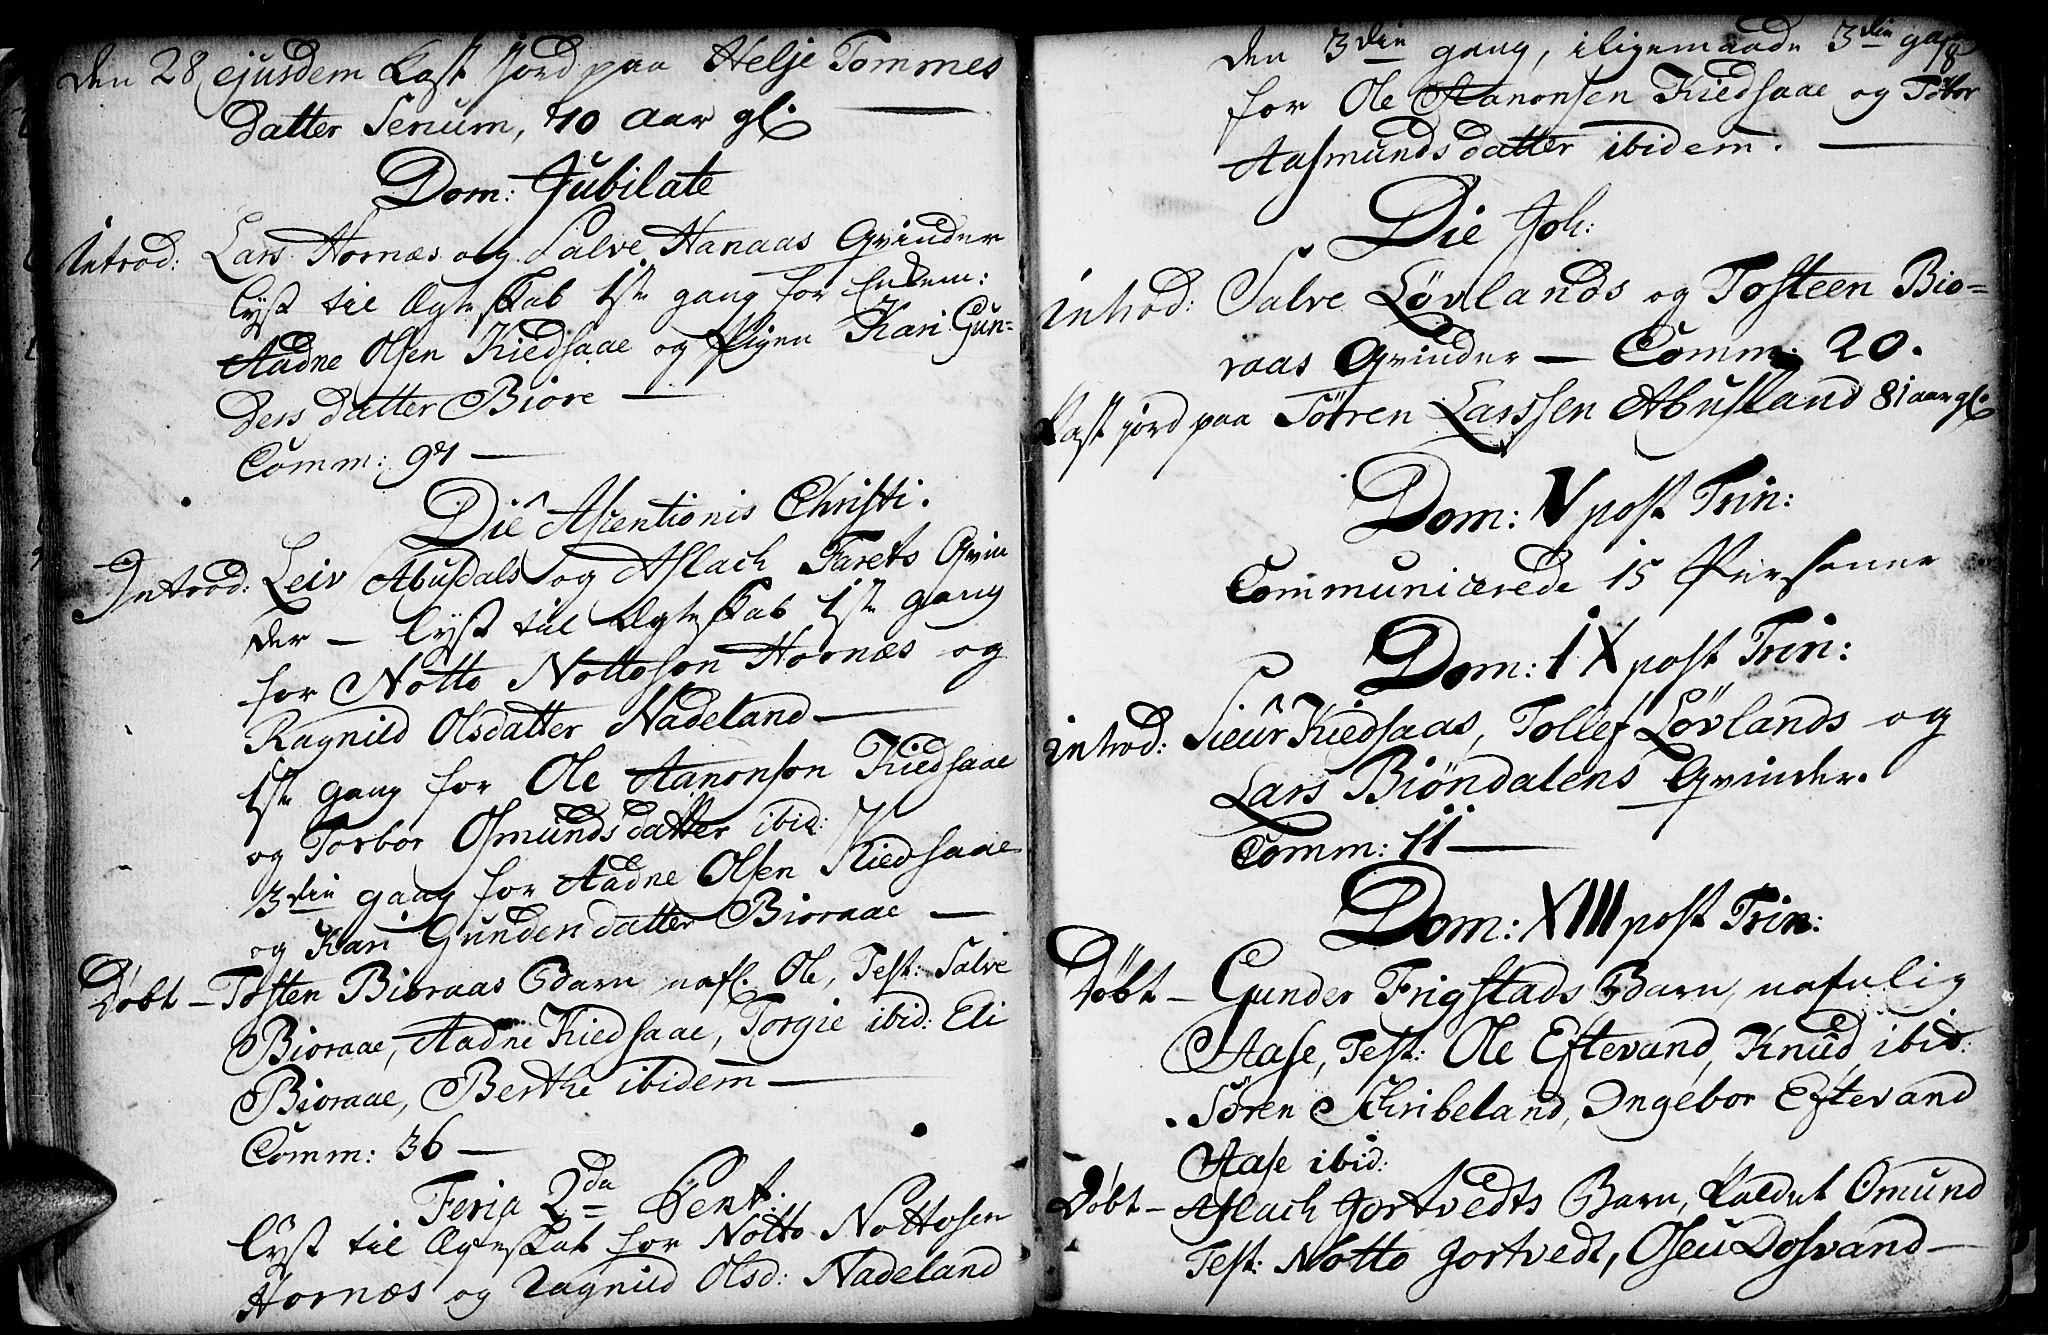 den 28 ejusdem Kast jord paa Helje Tommes
datter Senum, 70 aar gl.
Dom: Jubilate
Introd: Lars Hornæs og Salve Hanaas Qvinder
lyst til Ægteskab 1ste gang for
Aadne Olsen Kiedsaae og Pigen Kari Gun-
ders datter Biore
Comm: 94
Die Ascentionis Christi.
Introd: Leiv Abusdals og Aslach Farets Qvin
der - lyst til Ægteskab 1ste gang
for Notto Nottoson Hornæs og
Ragnild Olsdatter Nadeland
1ste gang for Ole Aanonson Kiedsaae
og Torbor Osmundsdatter ibid:
3die gang for Aadne Olsen Kiedsaae
og Kari Gundersdatter Bioraae
Døbt - Tosten Bioraas Barn nafl. Ole, Test: Salve
Bioraae, Aadne Kiedsaae, Torgie ibid: Eli
Bioraae, Berthe ibidem
Comm: 36
Feria 2da Pent:
lyst til Ægteskab for Notto Nottosen
Hornæs og Ragnild Olsd: Nadeland
den 3die gang, iligemaade 3die gang
for Ole Aanonsen Kiedsaae og Tobor
Aasmundsdatter ibidem.
Die Joh:
introd: Salve Løvlands og Tosteen Bio-
raas Qvinder - Comm: 20.
Kast jord paa Sören Larssen Abusland 81 aar gl.
Dom: V post Trin:
Communicerede 15 Personer
Dom: IX post Trin:
introd: Sieur Kiedsaas, Tollef Løvlands og
Lars Biøndalens Qvinder.
Comm: 11
Dom: XIII post Trin:
Døbt - Gunder Frigstads Barn, nafnlig
Aase, Test: Ole Eftevand, Knud ibid:
Søren Schribeland, Ingebor Eftevand
Aase ibid:
Døbt - Aslach Jortvedts Barn, Kaldet Omund
Test: Notto Jortvedt, Osen Dosvand